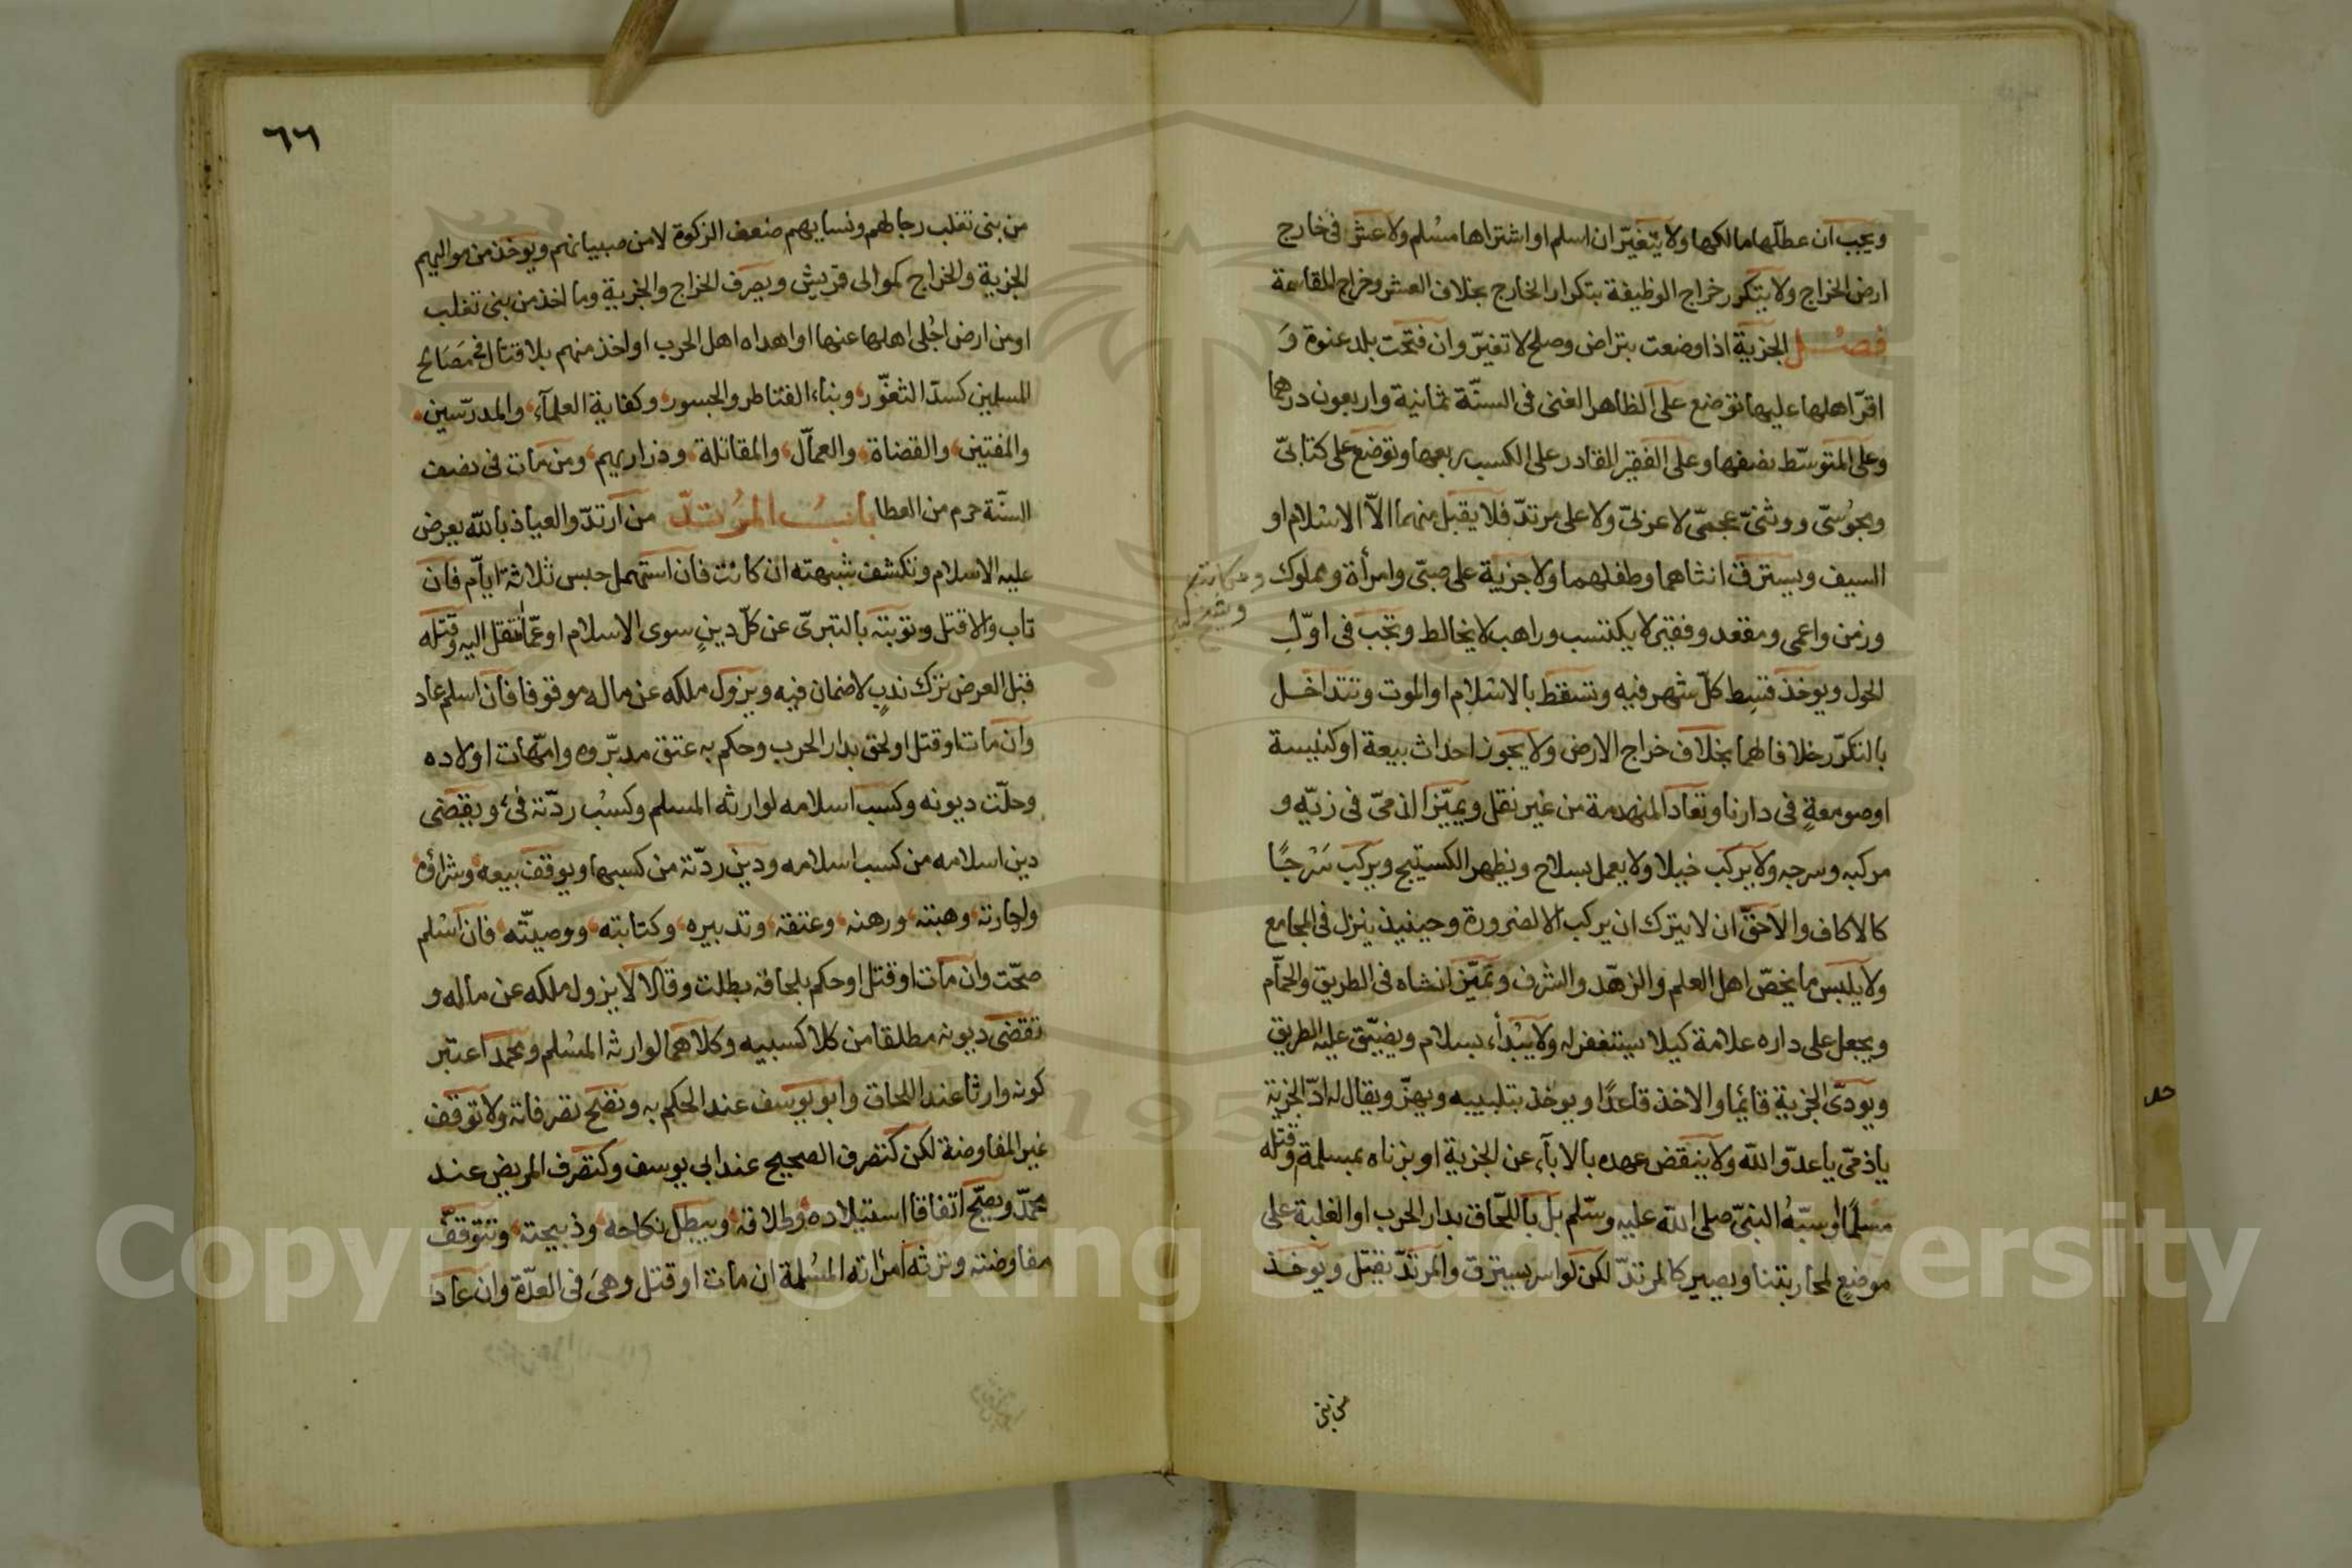 ويجب ان عطلها مالكها ولا يتغير ان اسلم او اشتراها مسلم ولا عشر في خارج
ارض الخراج ولا يتكرر خراج الوظيفة بتكرار الخارج بخلاف العشر وخراج المقاسمة
فصل الجزية اذا وضعت بتراض وصلح لا تغيّر وان فتحت بلد عنوة وَ
اقرّ اهلها عليها توضع على الظاهر الغنى فى السنّة ثمانية واربعون درهما
وعلى المتوسّط نصفها وعلى الفقير القادر على الكسب ربعها وتوضع على كتابىّ
ومجوسىّ ووثنىّ عجمىّ لا عربىّ ولا على مرتدّ فلا يقبل منهما الاّ الاسلام او
السيف ويسترق انثاهما وطفلهما ولا جزية على صبىّ وامرأة ومملوك
ومكاتب
وشيخ كبير
وزمن واعمى ومقعد وفقير لا يكتسب وراهب لا يخالط وتجب فى اوّل
الحول ويوخذ قسط كلّ شهر فيه وتسقط بالاسلام او الموت وتتداخل
بالتكرّر خلافا لهما بخلاف خراج الارض ولا يجوز احداث بيعة او كنيسة
او صومعةٍ فى دارنا وتعاد المنهدمة من غير نقل ويميّز الذمىّ فى زيّه و
مركبه وسرجه ولا يركب خيلا ولا يعمل بسلاح ويظهر الكستيج ويركب سَرْجًا
كالاكاف والاحقّ ان لا يترك ان يركب الا لضرورة وحينيذ ينزل فى المجامع
ولا يلبس ما يخصّ اهل العلم والزهّد والشرف وتميّز انثاه فى الطريق والحمّام
ويجعل على داره علامة كيلا يستغفر له ولا يبدأ بسلام ويضيّق عليه الطريق
ويودّى الجزية قايما والاخذ قاعدًا ويوخذ بتلبيبه ويهزّ ويقال له ادّ الجزية
ياذمىّ ياعدوّ الله ولا ينتقض عهده بالابآء عن الجزية او بزناه بمسلمة وقتله
مسلمًا اوسبّهُ النبىّ صلى الله عليه وسلم بل باللحاق بدار الحرب او الغلبة على
موضعٍ لمحاربتنا ويصير كالمرتدّ لكن لو اسر يسترق والمرتدّ يقتل ويوخذ
من بنى
٦٦
من بنى تغلب رجالهم ونسايهم ضعف الزكوة لا من صبيانهم ويوخذ من مواليهم
الجزية والخراج كموالى قريش ويصرف الخراج والجزية وما اخذ من بنى تغلب
او من ارض اجُلى اهلها عنها او اهداه اهل الحرب او اخذ منهم بلا قتال فى مصالح
المسلمين كسدّ الثغور وبناء القناطر والجسور وكفاية العلمآء والمدرّسين
والمفتين والقضاة والعمّال والمقاتلة وذراريهم ومن مات فى نصف
السنّة حرم من العطا بابُ المرُتدّ من ارتدّ والعياذ بالله يعرض
عليه الاسلام وتكشف شبهته ان كانت فان استمهل حبس ثلاثة ايّام فان
تاب والا قتل وتوبته بالتبرىّ عن كلّ دينٍ سوى الاسلام او عمّا انتقل اليه وقتله
قبل العرض ترك ندبٍ لا ضمان فيه ويزول ملكه عن ماله موقوفا فان اسلم عاد
وان مات او قتل او لحق بدار الحرب وحكم به عتق مدبّروه وامّهات اولاده
وحلّت ديونه وكسب اسلامه لوارثه المسلم وكسْب ردّته فئ ويقضى
دين اسلامه من كسب اسلامه ودين ردّته من كسبها ويوقف بيعه وشراؤه
واجارته وهبته ورهنه وعتقه وتدبيره وكتابته ووصيّته فان اسْلم
صحّت وان مات او قتل او حكم بلحاقه بطلت وقالا لا يزول ملكه عن ماله و
تقضى ديونه مطلقا من كلا كسبيه وكلاهما لوارثه المسْلم ومحمد اعتبر
كونه وارثا عند اللحاق وابو يوسف عند الحكم به وتصح تصرفاته ولا توقف
غير المفاوضة لكن كتصرف الصحيح عند ابي يوسف وكتصرف المريض عند
محمّد ويصحّ اتفاقا استيلاده وطلاقه ويبطل نكاحه وذبيحته وتتوقف
مفاوضته وترثه امراته المسْلمة ان مات او قتل وهى فى العدّة وان عاد
Copyright © King Saud University
1957